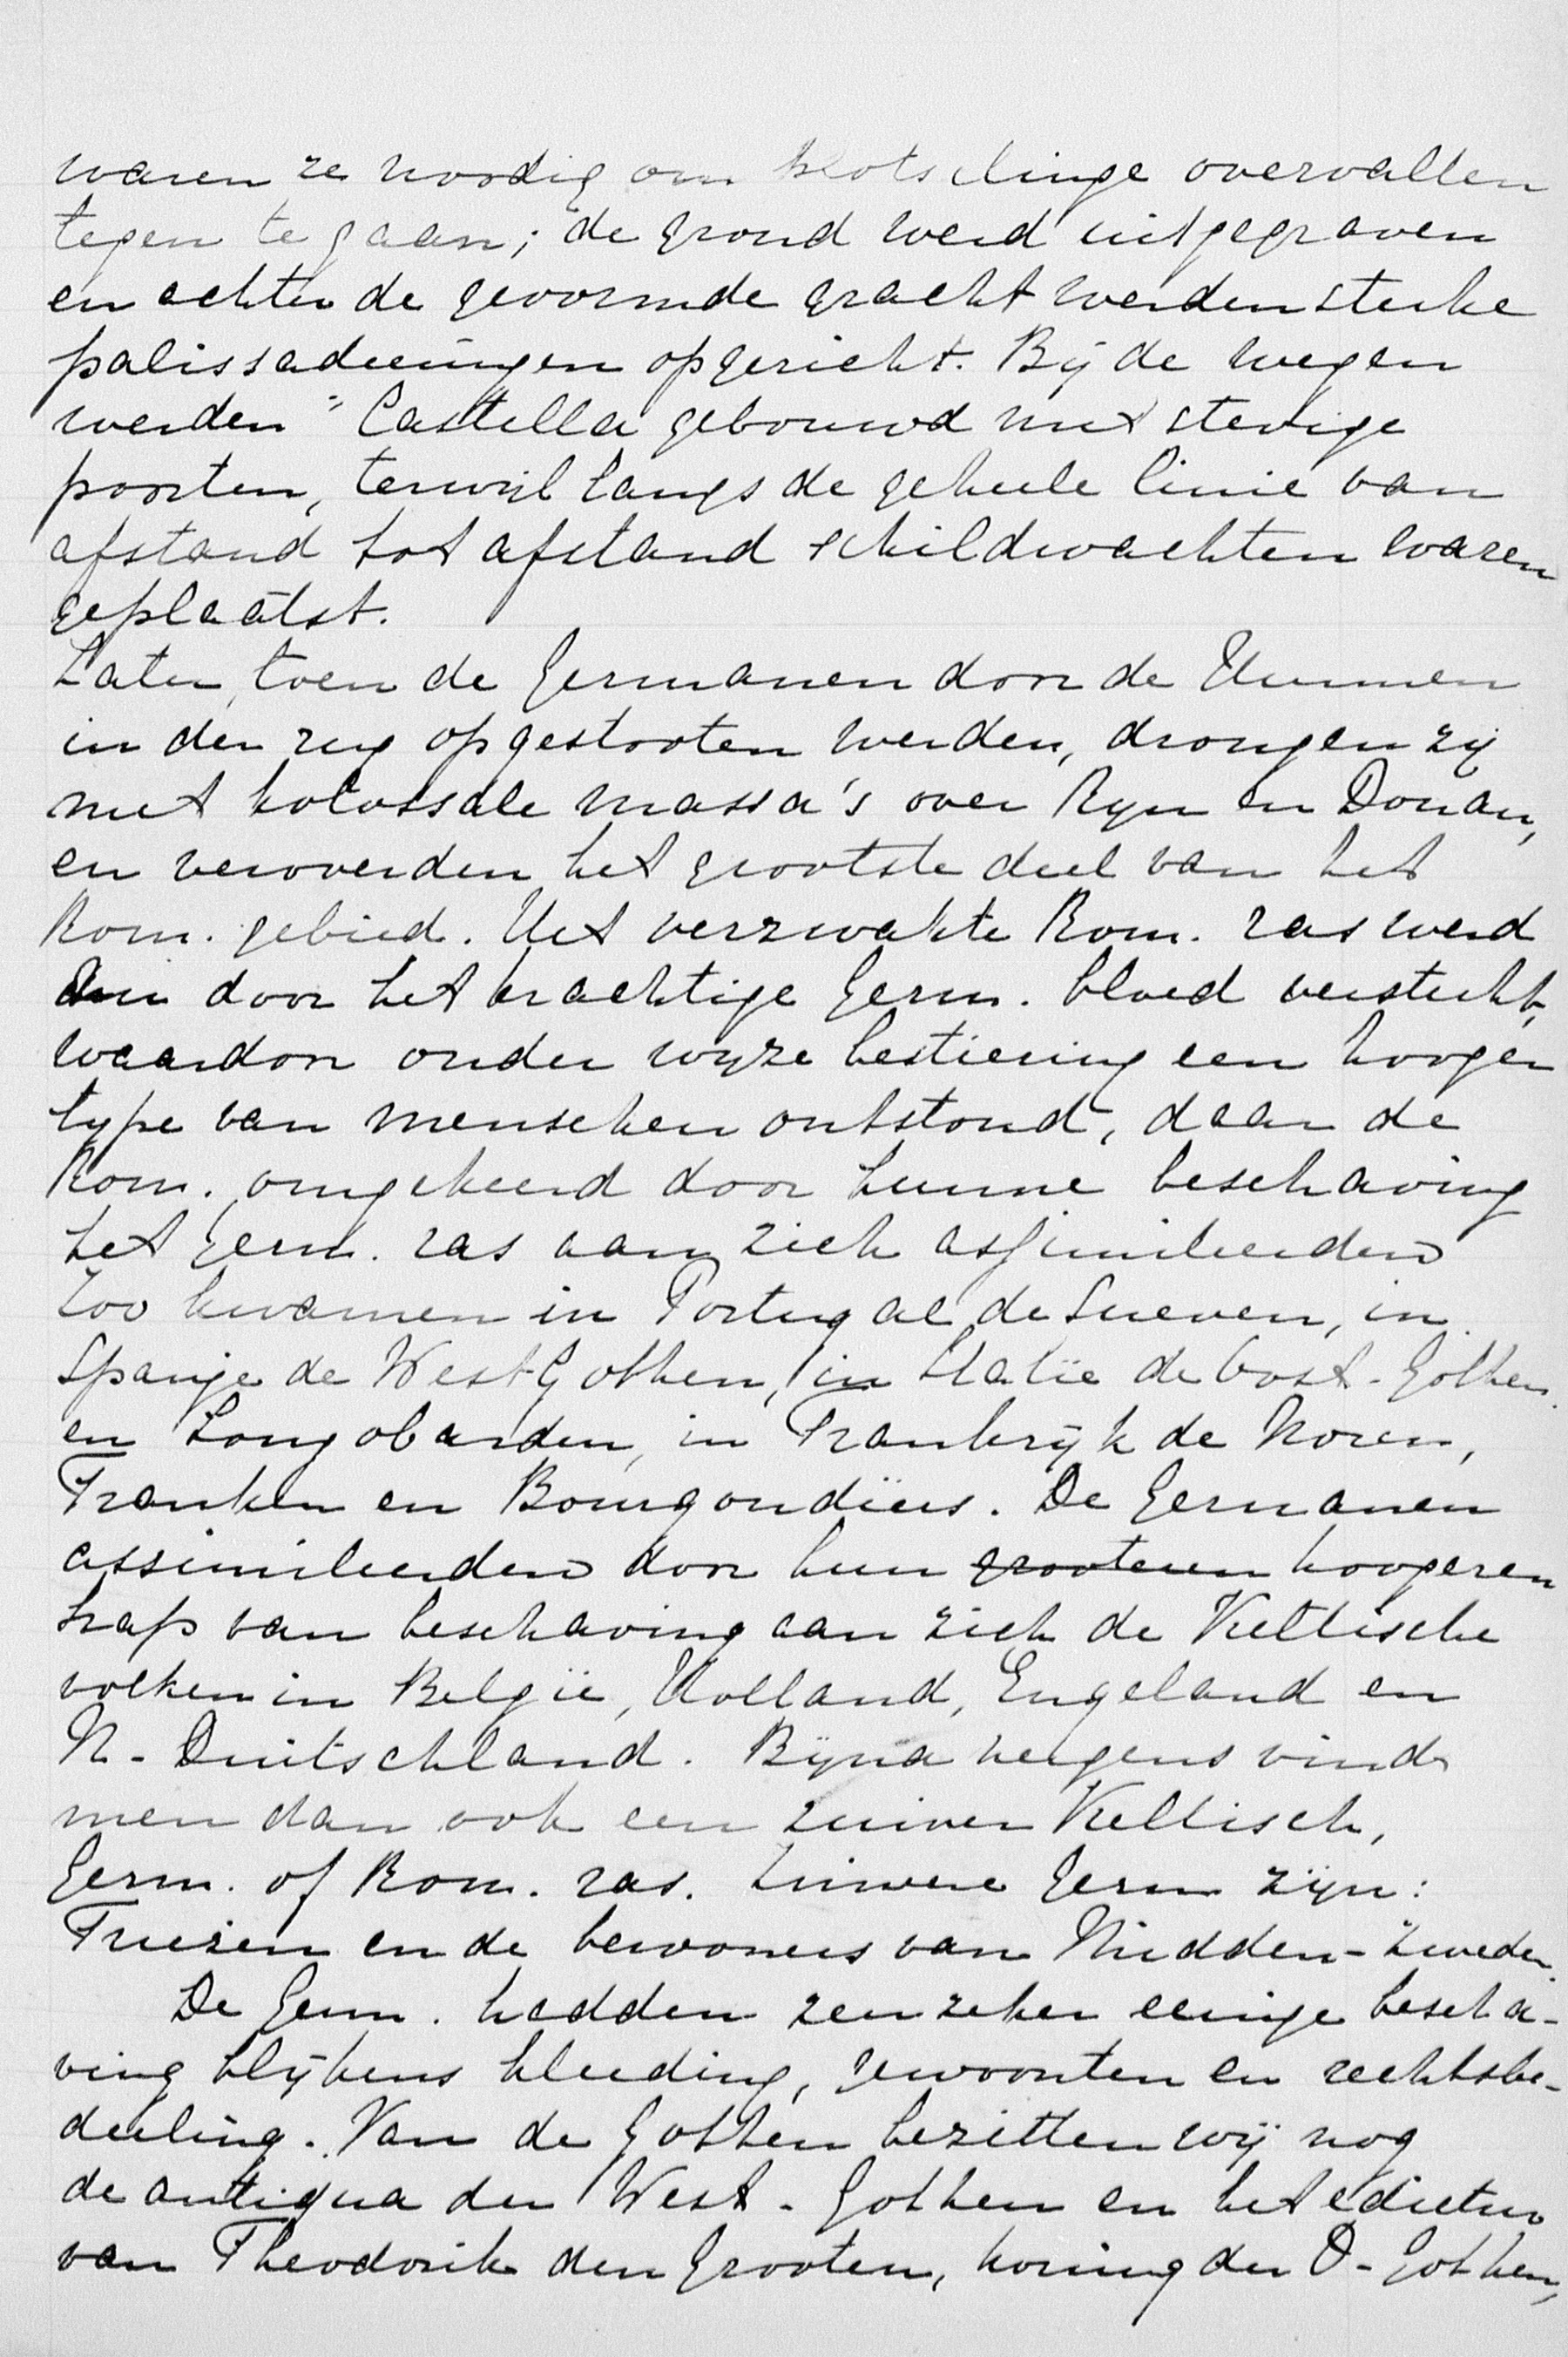 waren ze noodig om plotselinge overvallen
tegen te gaan; de grond werd uitgegraven
en achter de gevormde gracht werden sterke
palissadeeringen opgericht. Bij de wegen
werden " Castella gebouwd met stevige
poorten, terwijl langs de geheele linie van
afstand tot afstand schildwachten waren
geplaatst.
Later, toen de Germanen door de Hunnen
in den rug opgestooten werden, drongen zij
met kolossale massa's over Rijn en Donau,
en veroverden het grootste deel van het
Rom. gebied. Het verzwakte Rom. ras werd
door het krachtige Germ. bloed versterkt,
waardoor onder wijze bestiering een hooger
type van menschen ontstond, daar de
Rom. omgekeerd door hunne beschaving
het Germ. ras aan zich assimileerden
Zoo kwamen in Portugal de Sueven, in
Spanje de West-Gothen, in Italië de Oost-Gothen
en Longobarden, in Frankrijk de Noren,
Franken en Bourgondiërs. De Germanen
assimileerden door hun grooteren hoogeren
trap van beschaving aan zich de Keltische
volken in België, Holland, Engeland en
N.-Duitschland. Bijna nergens vindt
men dan ook een zuiver Keltisch,
Germ. of Rom. ras. Zuivere Germ zijn:
Friezen en de bewoners van Midden-Zweden.
De Germ. hadden zeer zeker eenige bescha-
ving blijkens kleeding, gewoonten en rechtsbe-
deeling. Van de Gothen bezitten wij nog
de antiqua der West-Gothen en het edictum
van Theodorik den Grooten, koning der O-Gothen,